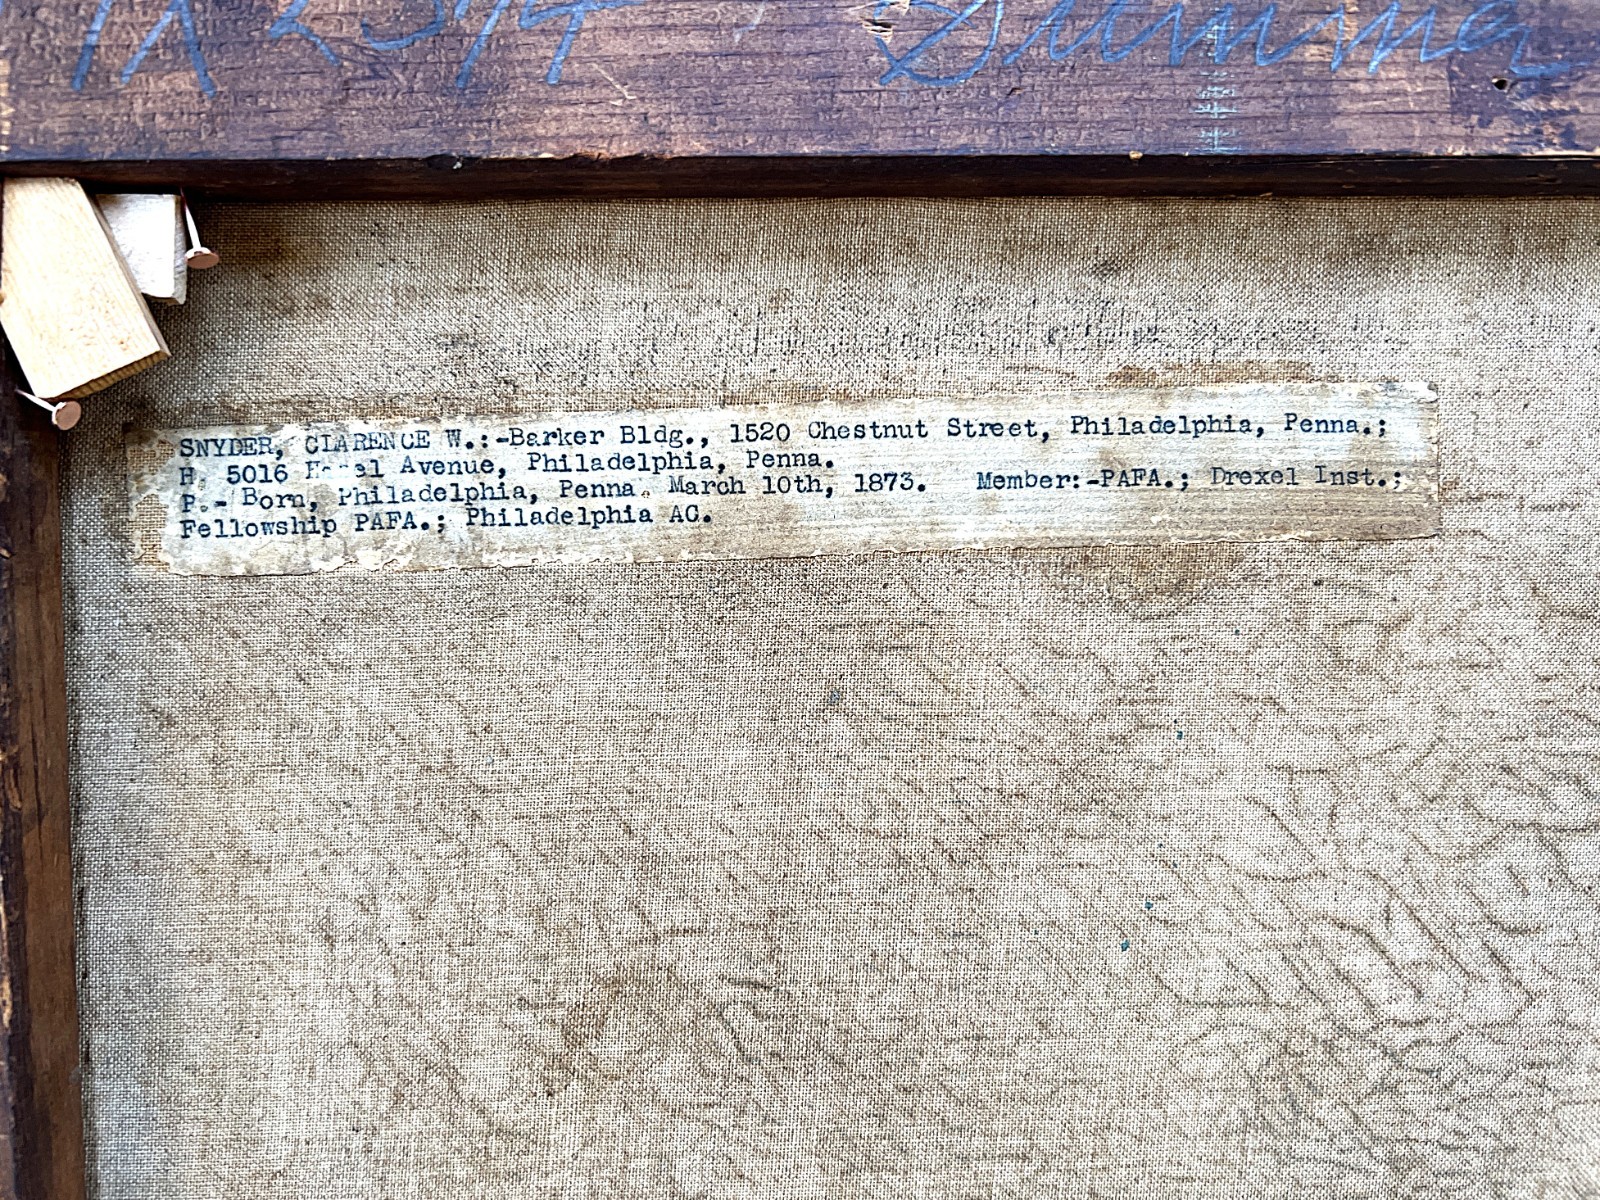 Summer
SNYDER, CLARENCE W.:-Barker Bldg., 1520 Chestnut Street, Philadelphia, Penna.;
H. 5016 Avenue, Philadelphia, Penna.
P.- Born, Philadelphia, Penna. March 10th, 1873. Member:-PAFA.; Drexel Inst.;
Fellowship PAFA.; Philadelphia AC.